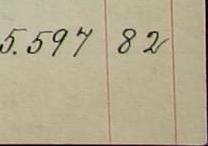 5.597 82